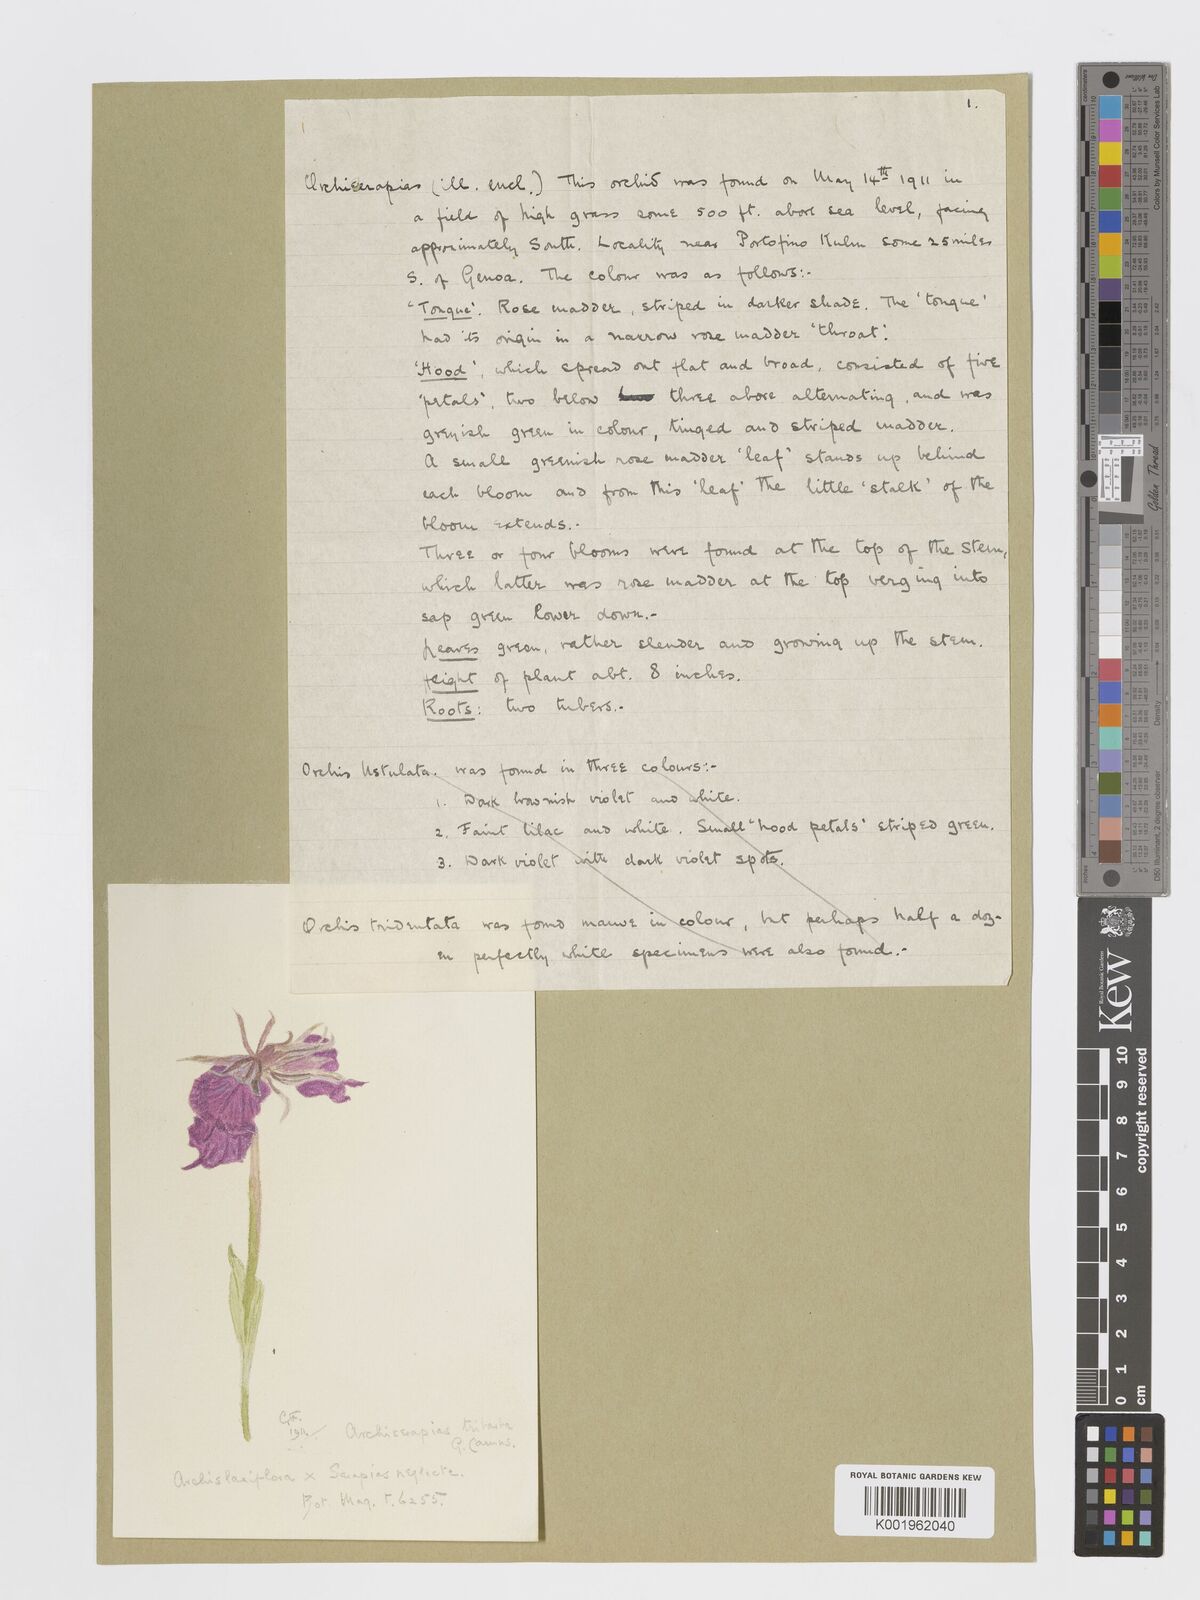 1.
Orchiserapias (ill. encl.) This orchid was found on May 14th 1911 in
a field of high grass some 500 ft. above sea level, facing
approximately South. Locality near Portofino Kulm some 25 miles
S. of Genoa. The colour was as follows:-
'Tongue'. Rose madder, striped in darker shade. The 'tongue'
had its origin in a narrow rose madder 'throat'.
'Hood', which spread out flat and broad, consisted of five
'petals', two below three above alternating, and was
greyish green in colour, tinged and striped madder.
A small greenish rose madder 'leaf' stands up behind
each bloom and from this 'leaf' the little 'stalk' of the
bloom extends.-
Three or four blooms were found at the top of the stem,
which latter was rose madder at the top verging into
sap green lower down.-
Leaves green, rather slender and growing up the stem.
Height of plant abt. 8 inches.
Roots: two tubers.-
Orchis Ustulata. was found in three colours:-
1. Dark brownish violet and white.
2. Faint lilac and white. Small 'hood petals' striped green.
3. Dark violet with dark violet spots.
Orchis tridentata was found mauve in colour, but perhaps half a doz-
en perfectly white specimens were also found.-
1911
Orchiserapias triloba
G. Camus.
Orchis laxiflora x Serapias neglecta.
Bot. Mag. t. 6255.
ROYAL BOTANIC GARDENS KEW
K001962040
Royal Botanic Gardens
Kew
copyright reserved
0 1 2 3 4 5 6 7 8 9 10
cm
Golden Thread